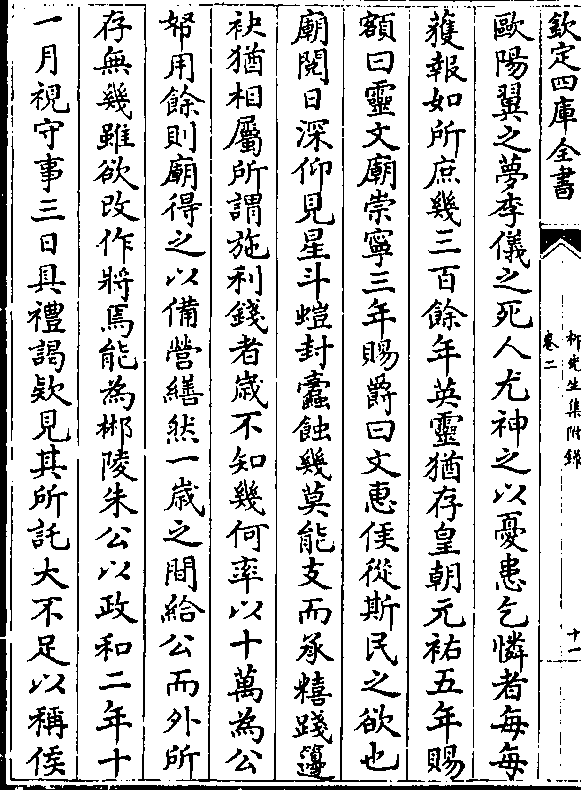 欽定四庫全書
柳先生集附錄
卷二
十一
歐陽翼之夢李儀之死人尤神之以憂患乞憐者每每
䕶報如所庶幾三百餘年英靈猶存皇朝元祐五年賜
額曰靈文廟崇寧三年賜爵曰文惠侯從斯民之欲也
廟閱日深仰見星斗螘封蠧蝕幾莫能支而承糦踐籩
袂猶相屬所謂施利錢者歳不知幾何率以十萬為公
帑用餘則廟得之以備營繕然一歳之間給公而外所
存無幾雖欲改作將焉能為郴陵朱公以政和二年十
一月視守事三日具禮謁欵見其所託大不足以稱侯